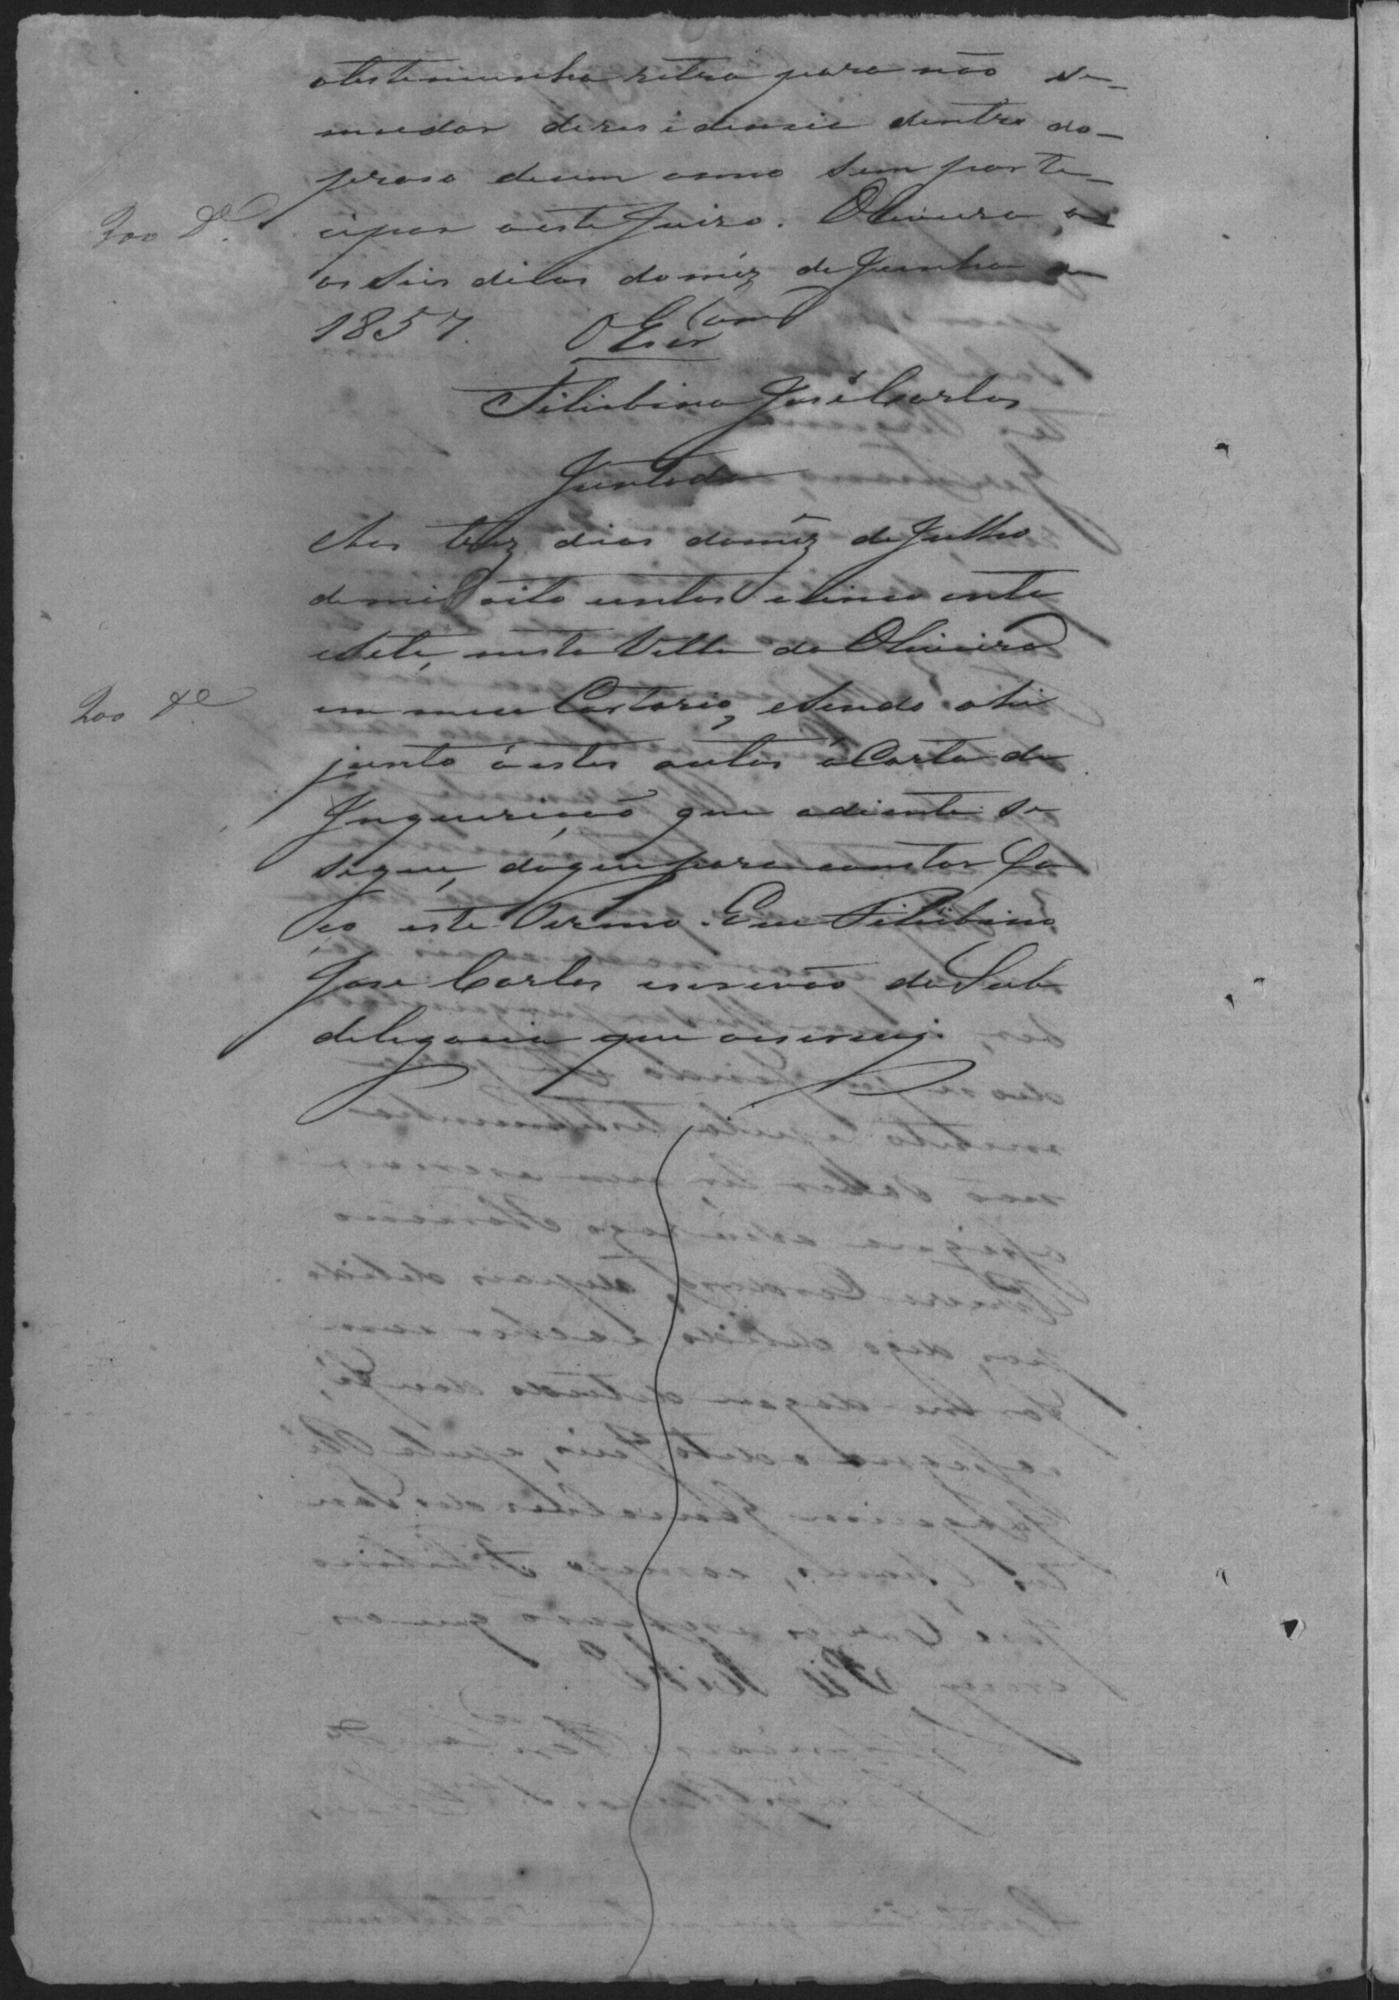 atestemunha retra para não se
mudar deresidencia dentro do
praso deum anno sem parte
cipar aeste Juizo. Oliveira, a
os seis dias domêz de Junho de
200 Dº
1857. O Escr.am
Felisbino José Carlos
Juntada
Aos trez dias domêz de Julho
demil oito centos e cinco enta
esete, nesta Villa de Oliveira
em meu Cartorio, e sendo ahi
200 Dº
junto á estes autos á Carta de
Inquerição que adiente se
segue, doque para constar fa
ço este Termo. Eu Felisbino
José Carlos escrivão da Sub
delegacia que oescrevy.